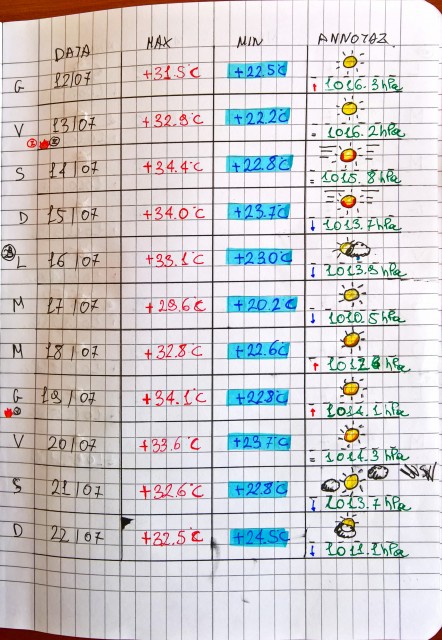 DATA MAX MIN ANNOTAZ.
G 12/07 +31.5°C +22.5°C ↑ 1016.3hPa
V 13/07 +32.9°C +22.2°C = 1016.2hPa
S 14/07 +34.4°C +22.8°C = 1015.8hPa
D 15/07 +34.0°C +23.7°C ↓ 1013.7hPa
L 16/07 +33.1°C +23.0°C ↓ 1013.9hPa
M 17/07 +29.6°C +20.2°C ↓ 1010.5hPa
M 18/07 +32.8°C +22.6°C ↑ 1012.6hPa
G 19/07 +34.1°C +22.8°C ↑ 1014.1hPa
V 20/07 +33.6°C +23.7°C = 1014.3hPa
S 21/07 +32.6°C +22.8°C ↓ 1013.7hPa
D 22/07 +32.5°C +24.5°C ↓ 1011.1hPa